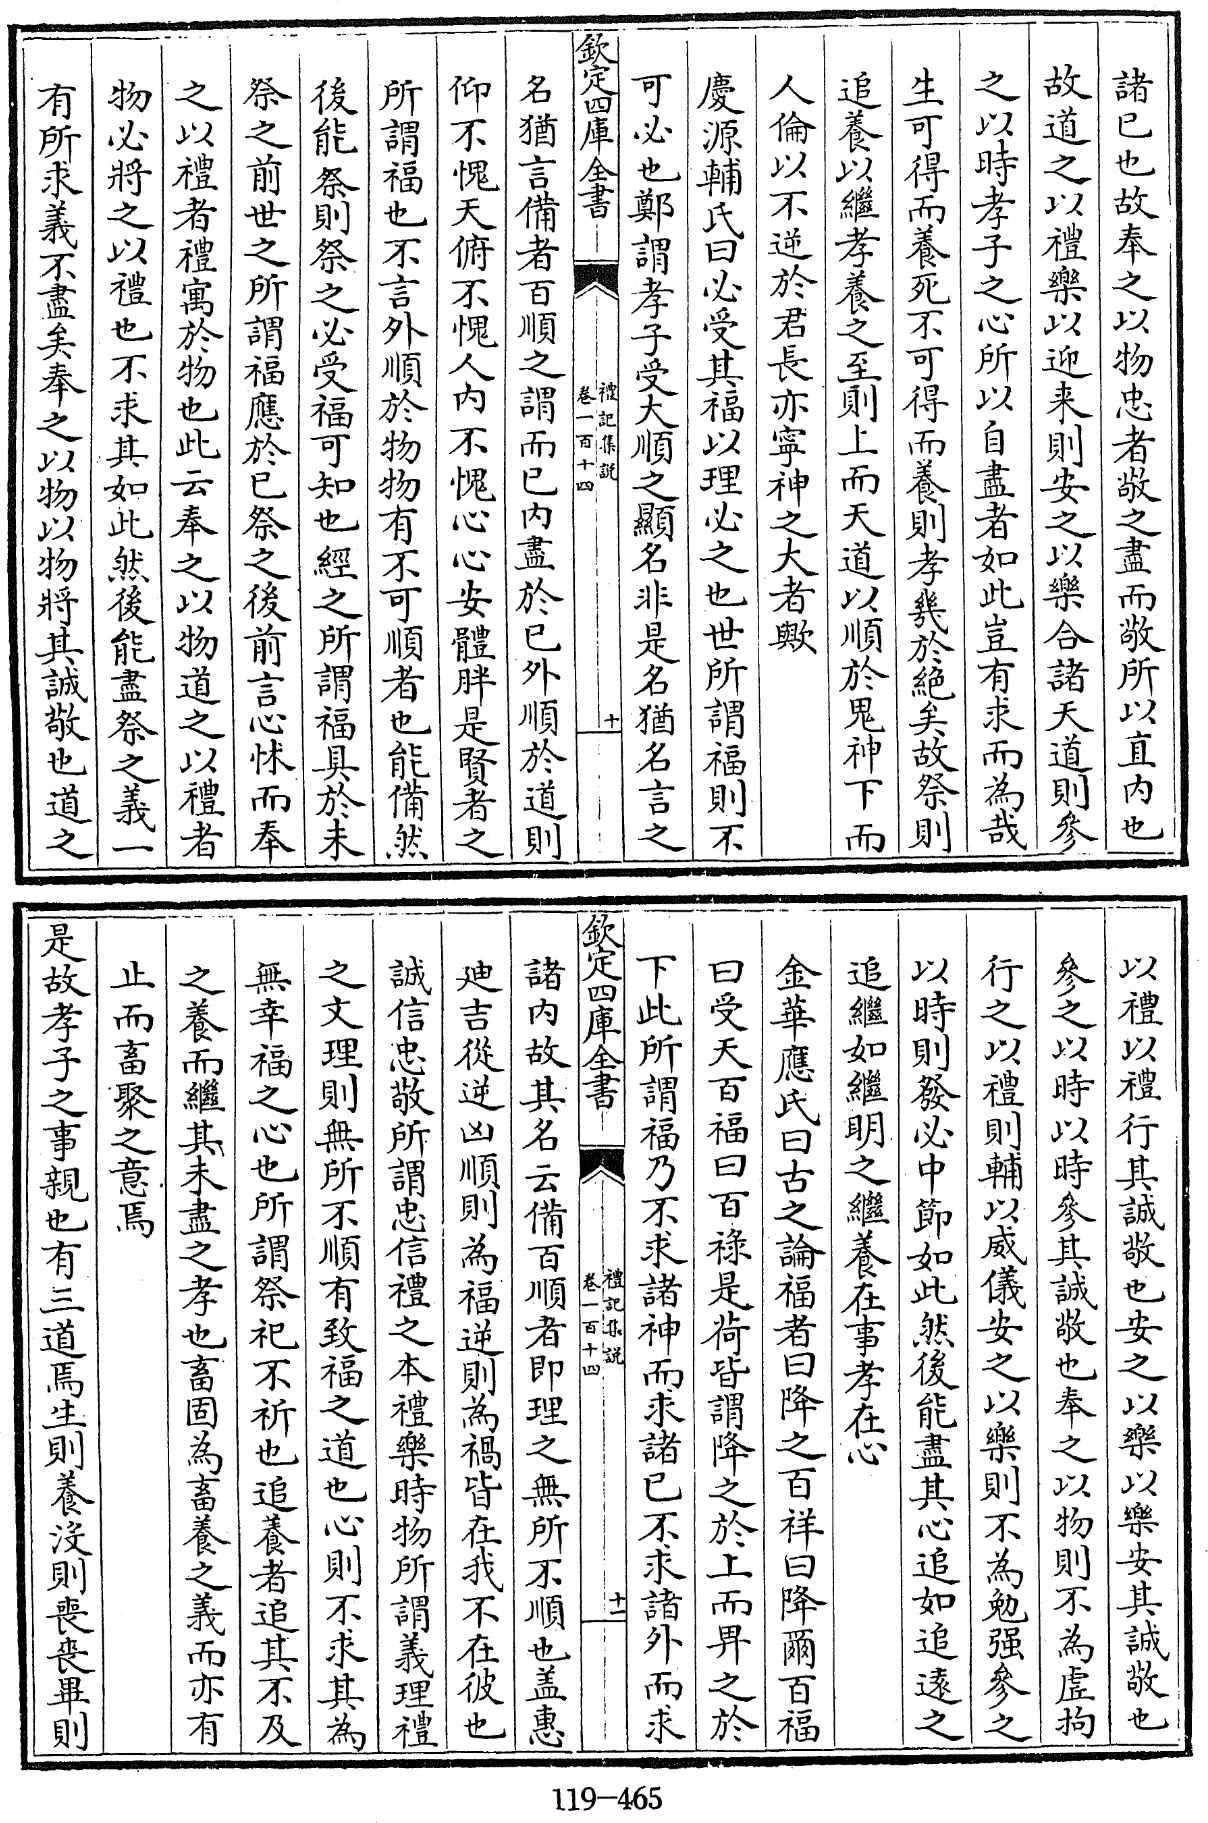 諸已也故奉之以物忠者敬之盡而敬所以直内也
故道之以禮樂以迎来則安之以樂合諸天道則參
之以時孝子之心所以自盡者如此豈有求而為哉
生可得而養死不可得而養則孝㡬於絶矣故祭則
追養以繼孝養之至則上而天道以順於鬼神下而
人倫以不逆於君長亦寧神之大者歟
慶源輔氏曰必受其福以理必之也世所謂福則不
可必也鄭謂孝子受大順之顯名非是名猶名言之
欽定四庫全書
禮記集説
卷一百十四
十
名猶言備者百順之謂而已内盡於已外順於道則
仰不愧天俯不愧人内不愧心心安體胖是賢者之
所謂福也不言外順於物物有不可順者也能備然
後能祭則祭之必受福可知也經之所謂福具於未
祭之前世之所謂福應於已祭之後前言心怵而奉
之以禮者禮寓於物也此云奉之以物道之以禮者
物必將之以禮也不求其如此然後能盡祭之義一
有所求義不盡矣奉之以物以物將其誠敬也道之
以禮以禮行其誠敬也安之以樂以樂安其誠敬也
參之以時以時參其誠敬也奉之以物則不為虛拘
行之以禮則輔以威儀安之以樂則不為勉强參之
以時則發必中節如此然後能盡其心追如追逺之
追繼如繼明之繼養在事孝在心
金華應氏曰古之論福者曰降之百祥曰降爾百福
曰受天百福曰百祿是荷皆謂降之於上而畀之於
下此所謂福乃不求諸神而求諸已不求諸外而求
欽定四庫全書
禮記集説
卷一百十四
十一
諸内故其名云備百順者即理之無所不順也盖惠
迪吉從逆凶順則為福逆則為禍皆在我不在彼也
誠信忠敬所謂忠信禮之本禮樂時物所謂義理禮
之文理則無所不順有致福之道也心則不求其為
無幸福之心也所謂祭祀不祈也追養者追其不及
之養而繼其未盡之孝也畜固為畜養之義而亦有
止而畜聚之意焉
是故孝子之事親也有三道焉生則養沒則喪喪畢則
119-465